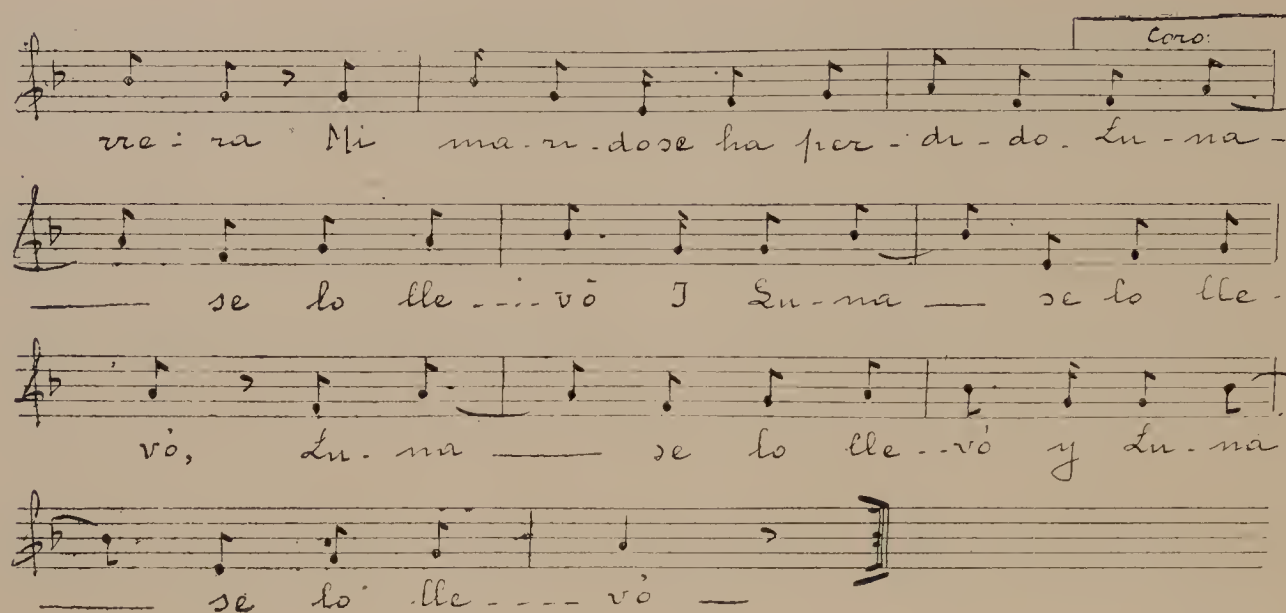 Coro:
rre - ra Mi ma - ri - dose ha per - di - do. Lu - na -
— se lo lle - - - - vó I Lu - na — se lo lle -
vó, Lu - na — se lo lle - - vó y Lu - na
— se lo lle - - - - vó —